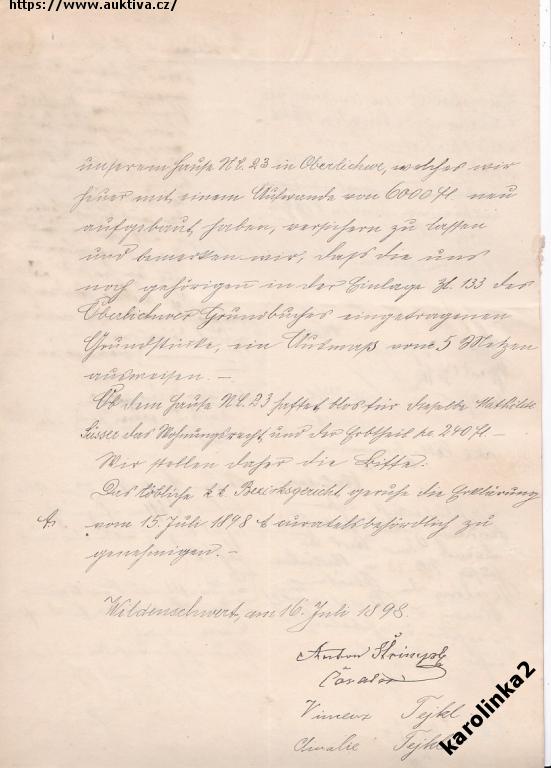 https://www.auktiva.cz/
unserem Hause NC. 23 in Oberlichwe, welches wir
heuer mit einem Aufwande von 6000 fl. neu
aufgebaut haben, versichern zu lassen
und bemerken wir, daß die uns
noch gehörigen in der Einlage Zl. 133 des
Oberlichwer Grundbuches eingetragenen
Grundstücke, ein Ausmaß vom 5 Metzen
ausweisen. —
Ob dem Hause NC. 23 haftet blos für dieselbe Mathilde
das Wohnungsrecht und der Erbtheil pr 240 fl. —
Wir stellen daher die Bitte:
Das löbliche k. k. Bezirksgericht geruhe die Erklärung
vom 15. Juli 1898 curatelsbehördlich zu
genehmigen. —
Wildenschwert, am 16. Juli 1898.
Anton
Vincenz Tejkl
Amalie Tejkl
karolinka2